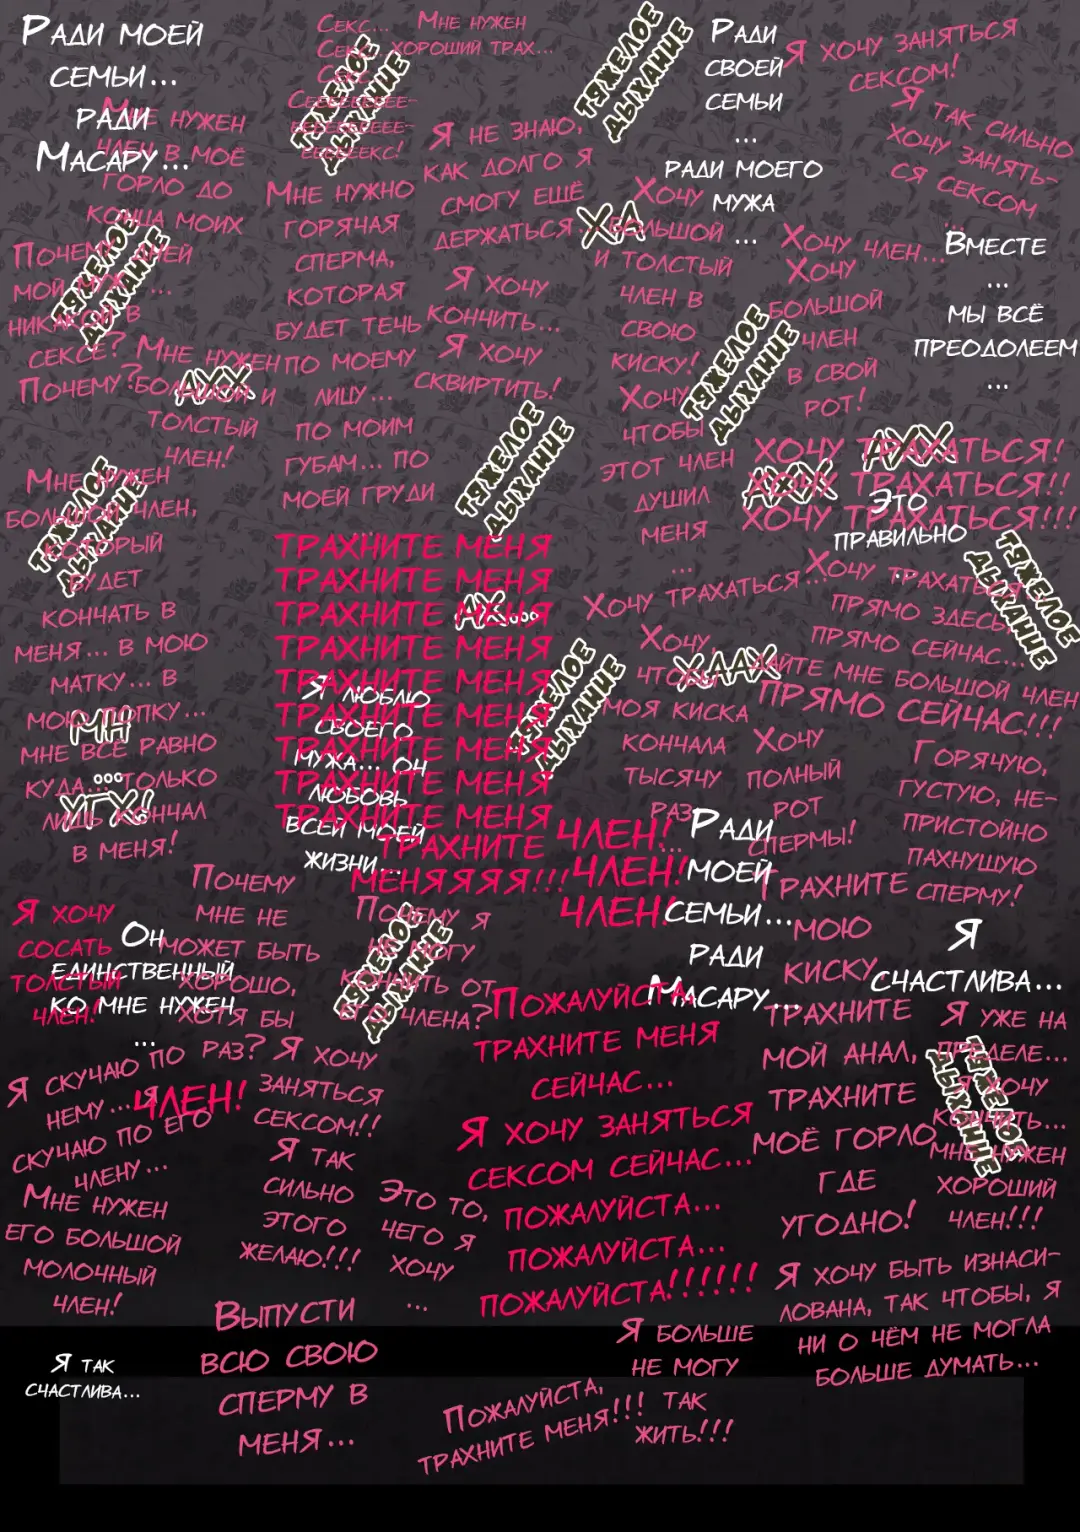 Ради моей
семьи...
ради
Масару...
Мне нужен
член в моё
горло до
конца моих
дней
...
Секс...
Секс...
Секс...
Сееееееееее-
еееееееееее-
еееееекс!
Мне нужен
хороший трах...
тяжелое
дыхание
тяжелое
дыхание
Ради
своей
семьи
...
ради моего
мужа
...
Я хочу заняться
сексом!
Я так сильно
хочу занять-
ся сексом
...
Я не знаю,
как долго я
смогу ещё
держаться...
Мне нужно
горячая
сперма,
которая
будет течь
по моему
лицу...
по моим
губам... по
моей груди
Ха
Хочу
большой
и толстый
член в
свою
киску!
Хочу
чтобы
этот член
душил
меня
...
Хочу член...
Хочу
большой
член
в свой
рот!
Вместе
...
мы всё
преодолеем
...
Почему
мой муж
никакой в
сексе?
Почему?
тяжелое
дыхание
Мне нужен
большой и
толстый
член!
Ахх
Я хочу
кончить...
Я хочу
сквиртить!
тяжелое
дыхание
тяжелое
дыхание
ХОЧУ ТРАХАТЬСЯ!
ХОЧУ ТРАХАТЬСЯ!!
ХОЧУ ТРАХАТЬСЯ!!!
Ахх
Это
правильно
...
тяжелое
дыхание
Мне нужен
большой член,
который
будет
кончать в
меня... в мою
матку... в
мою попку...
мне всё равно
куда... только
лишь кончал
в меня!
тяжелое
дыхание
Мн
...
Угх!
ТРАХНИТЕ МЕНЯ
ТРАХНИТЕ МЕНЯ
ТРАХНИТЕ МЕНЯ
ТРАХНИТЕ МЕНЯ
ТРАХНИТЕ МЕНЯ
ТРАХНИТЕ МЕНЯ
ТРАХНИТЕ МЕНЯ
ТРАХНИТЕ МЕНЯ
ТРАХНИТЕ МЕНЯ
ТРАХНИТЕ
МЕНЯЯЯЯ!!!
Ах...
Я люблю
своего
мужа... он
любовь
всей моей
жизни...
тяжелое
дыхание
Хочу трахаться...
Хочу
чтобы
моя киска
кончала
тысячу
раз
...
Хаах
Хочу трахаться
прямо здесь,
прямо сейчас...
Дайте мне большой член
ПРЯМО СЕЙЧАС!!!
Хочу
полный
рот
спермы!
Горячую,
густую, не-
пристойно
пахнущую
сперму!
ЧЛЕН!
ЧЛЕН!
ЧЛЕН!
Ради
моей
семьи...
ради
Масару...
Трахните
мою
киску,
трахните
мой анал,
трахните
моё горло
где
угодно!
Я
счастлива...
Я хочу
сосать
толстый
член!
Он
единственный
ко мне нужен
...
Почему
мне не
может быть
хорошо,
хотя бы
раз?
Почему я
не могу
кончить от
его члена?
тяжелое
дыхание
Пожалуйста,
трахните меня
сейчас...
Я хочу заняться
сексом сейчас...
пожалуйста...
пожалуйста...
пожалуйста!!!!!!
Я уже на
пределе...
Я хочу
кончить...
мне нужен
хороший
член!!!
тяжелое
дыхание
Я скучаю по
нему... я
скучаю по его
члену...
ЧЛЕН!
Я хочу
заняться
сексом!!
Я так
сильно
этого
желаю!!!
Это то,
чего я
хочу
...
Мне нужен
его большой
молочный
член!
Выпусти
всю свою
сперму в
меня...
Я хочу быть изнаси-
лована, так чтобы, я
ни о чём не могла
больше думать...
Я больше
не могу
так
жить!!!
Я так
счастлива...
Пожалуйста,
трахните меня!!!